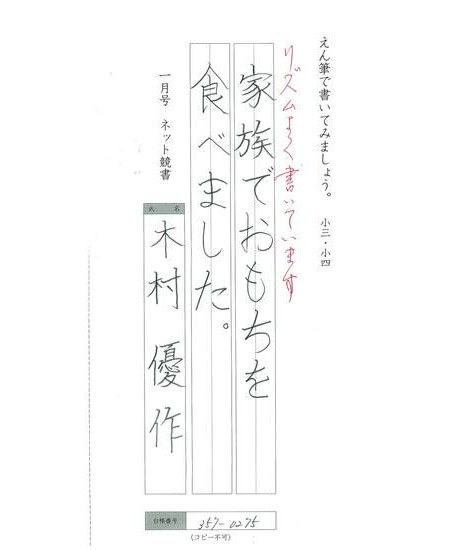 えん筆で書いてみましょう。 小三・小四
リズムよく書いています
家族でおもちを
食べました。
一月号 ネット競書
氏 名
木村 優作
台帳番号 357-0275
(コピー不可)